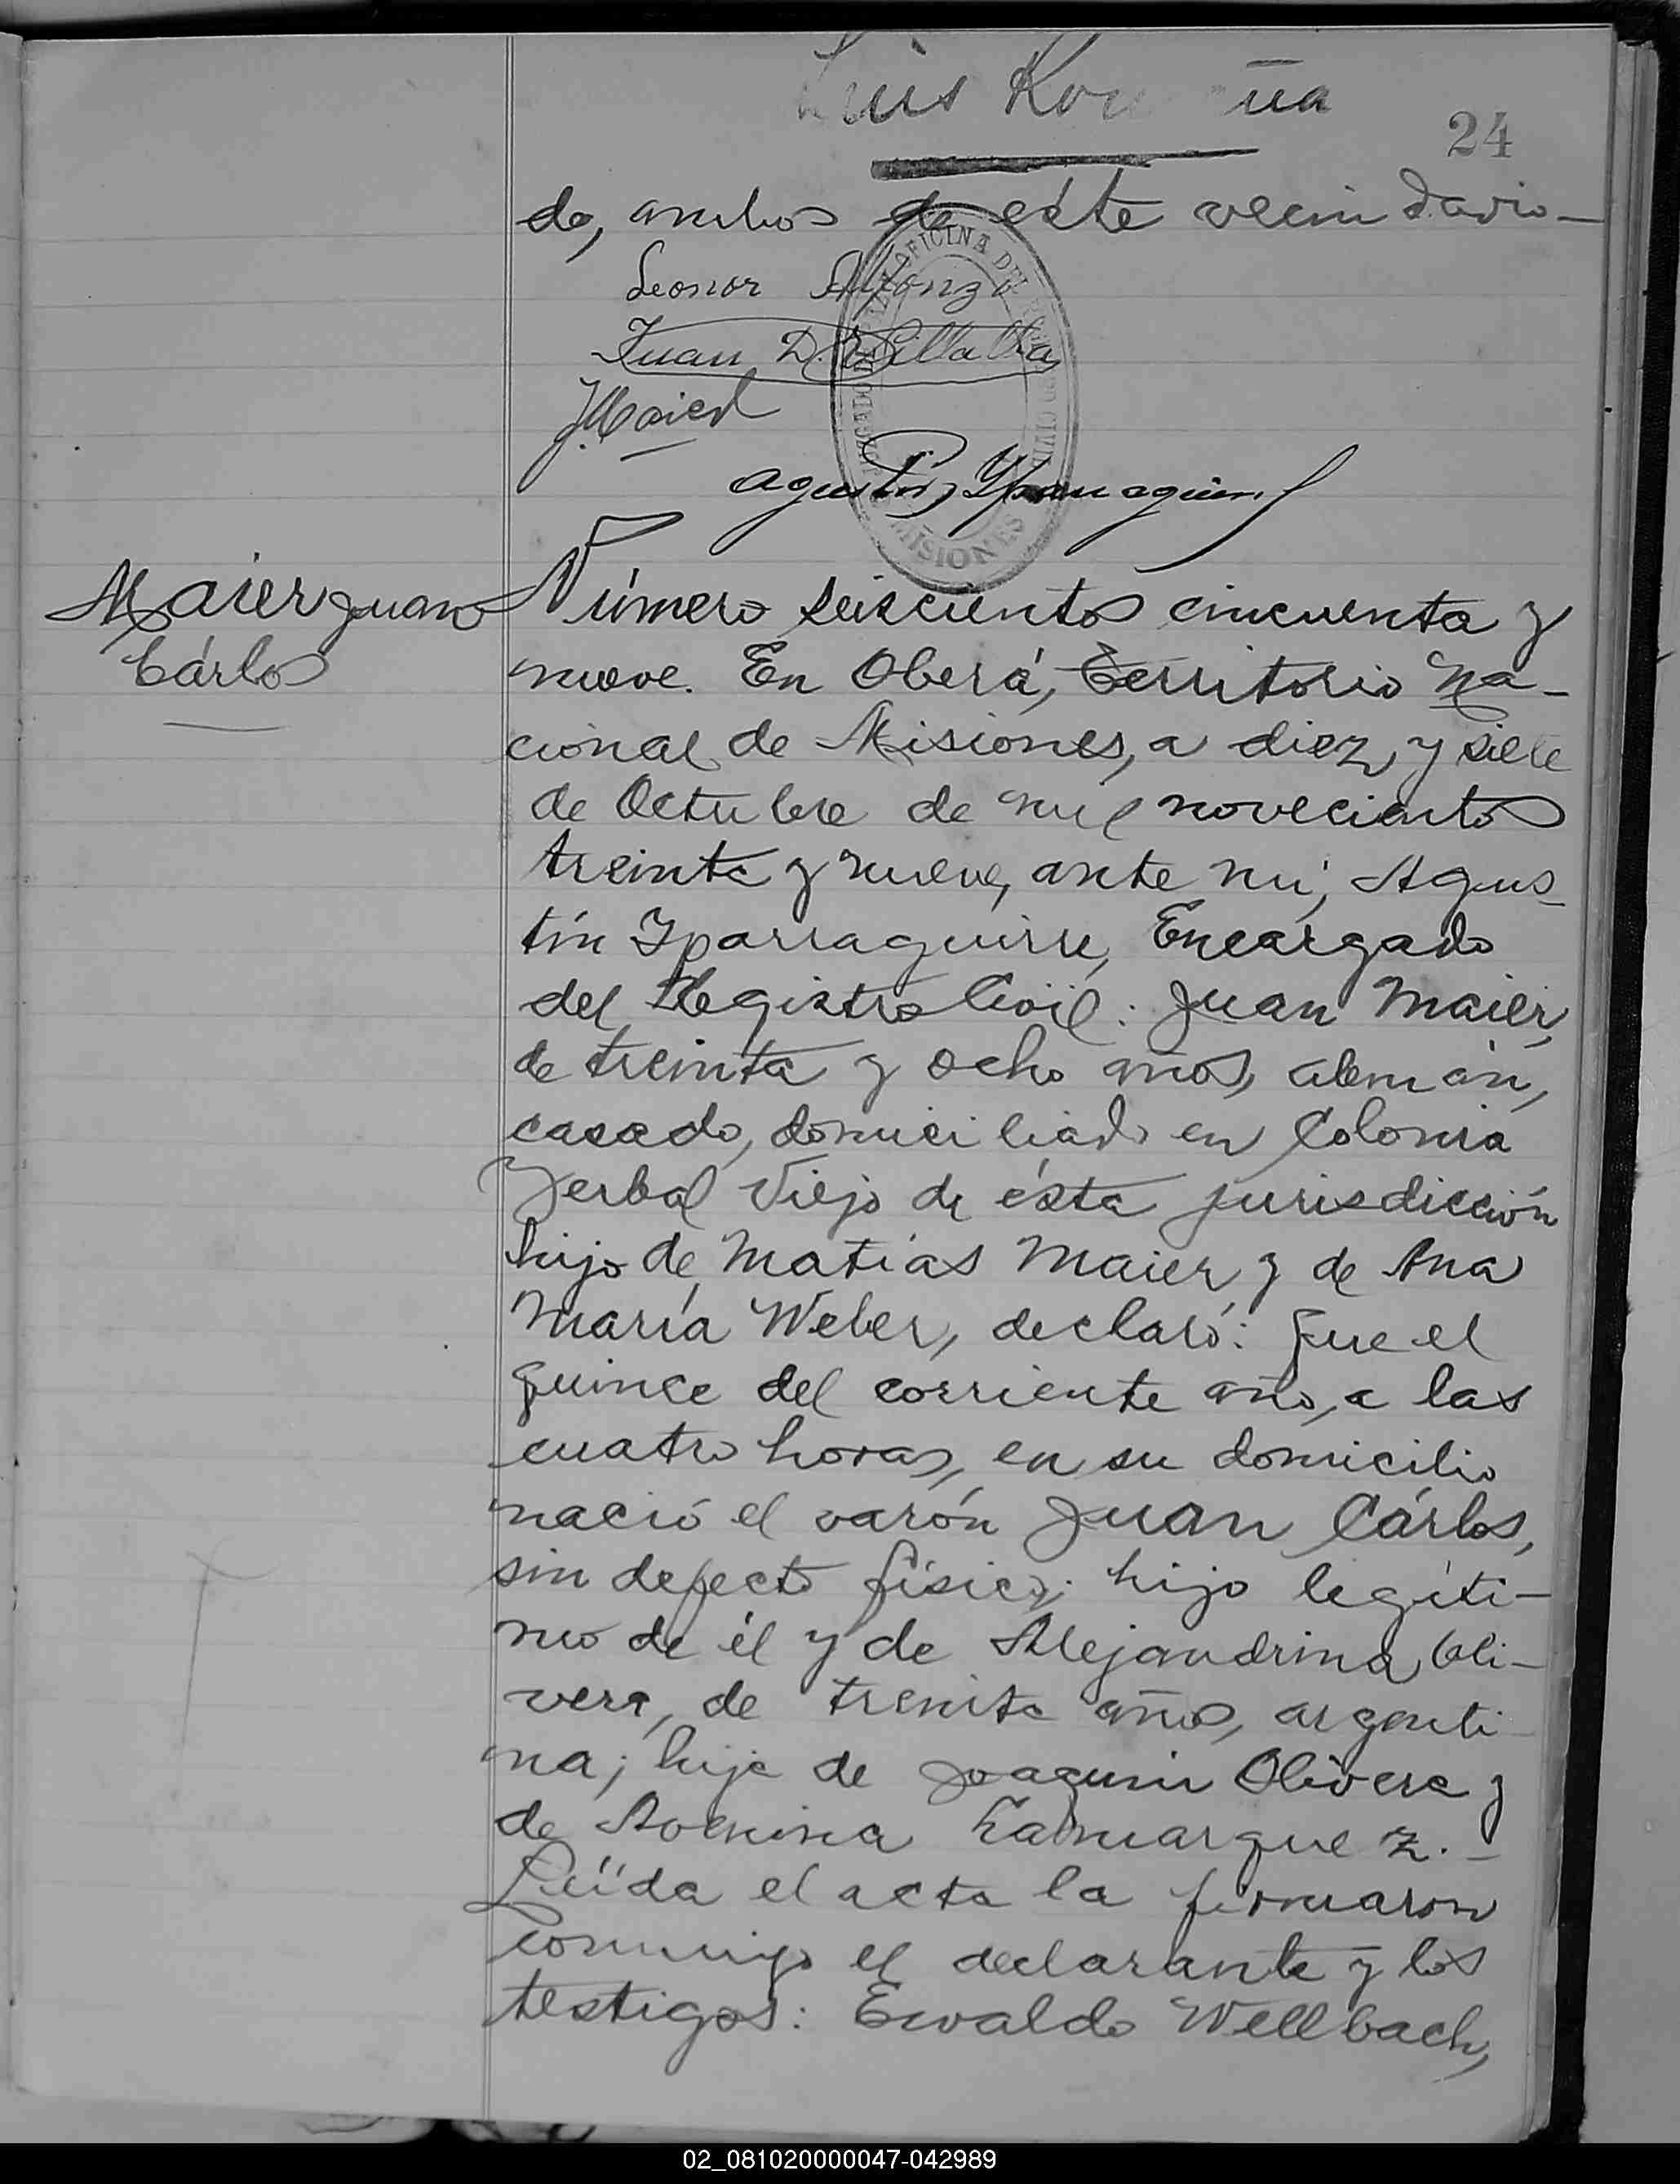 Luis
24
do, ambos de éste vecindario—
Leonor Alfonzo
Juan D. Villalba
J. Maier
Agustín Yparraguirre
OFICINA DEL REGISTRO CIVIL
MISIONES
Maier Juan
Cárlos
Número seiscientos cincuenta y
nueve. En Oberá, Territorio Na-
cional de Misiones, a diez y siete
de Octubre de mil novecientos
treinta y nueve, ante mí, Agus-
tín Yparraguirre, Encargado
del Registro Civil: Juan Maier,
de treinta y ocho años, alemán,
casado, domiciliado en Colonia
Yerbal Viejo de ésta jurisdicción
hijo de Matías Maier y de Ana
María Weber, declaró: Que el
quince del corriente año, a las
cuatro horas, en su domicilio
nació el varón Juan Cárlos,
sin defecto físico; hijo legíti-
mo de él y de Alejandrina Oli-
vera, de treinta años, argenti-
na; hija de Joaquin Olivera y
de
Leída el acta la firmaron
conmigo el declarante y los
testigos: Ewaldo Wellbach,
02_081020000047-042989